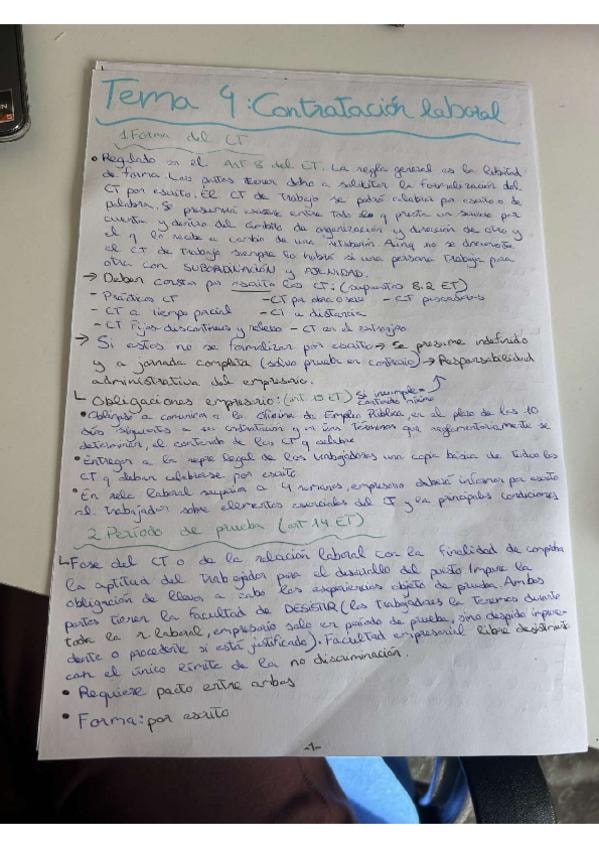 Tema 4: Contratación laboral
1. Forma del CT
• Regulado en el Art 8 del ET. La regla general es la libertad
de forma. Las partes tienen dcho a solicitar la formalización del
CT por escrito. El CT de trabajo se podrá celebrar por escrito o de
palabra. Se presumirá existente entre todo el q presta un servicio por
cuenta y dentro del ámbito de organización y dirección de otro y
el q lo recibe a cambio de una retribución. Aunq no se documente
el CT de trabajo siempre lo habrá si una persona trabaja para
otra con SUBORDINACIÓN y AJENIDAD.
→ Deben constar por escrito los CT: (supuestos 8.2 ET)
- Prácticas CT - CT por obra o serv - CT pescadores
- CT a tiempo parcial - CT a distancia
- CT Fijos-discontinuos y relevo - CT en el extranjero
→ Si estos no se formalizan por escrito → Se presume indefinido
y a jornada completa (salvo prueba en contrario) → Responsabilidad
administrativa del empresario.
↳ Obligaciones empresario: (art ET) Si incumple =
• Obligado a comunicar a la Oficina de Empleo Pública, en el plazo de los 10
días siguientes a su contratación y en los términos que reglamentariamente se
determinen, el contenido de los CT q celebre
• Entregar a la repre legal de los trabajadores una copia básica de todos los
CT q deban celebrarse por escrito
• En rela laboral superior a 4 semanas, empresario deberá informar por escrito
al trabajador sobre elementos esenciales del CT y las principales condiciones
2. Período de prueba (art 14 ET)
↳ Fase del CT o de la relación laboral con la finalidad de comprobar
la aptitud del trabajador para el desarrollo del puesto. Impone la
obligación de llevar a cabo las experiencias objeto de prueba. Ambas
partes tienen la facultad de DESISTIR (los trabajadores la tenemos durante
toda la r. laboral, empresario solo en periodo de prueba, sino despido improce-
dente o procedente si está justificado). Facultad empresarial libre desistimiento
con el único límite de la no discriminación.
• Requiere pacto entre ambos
• Forma: por escrito
-1-